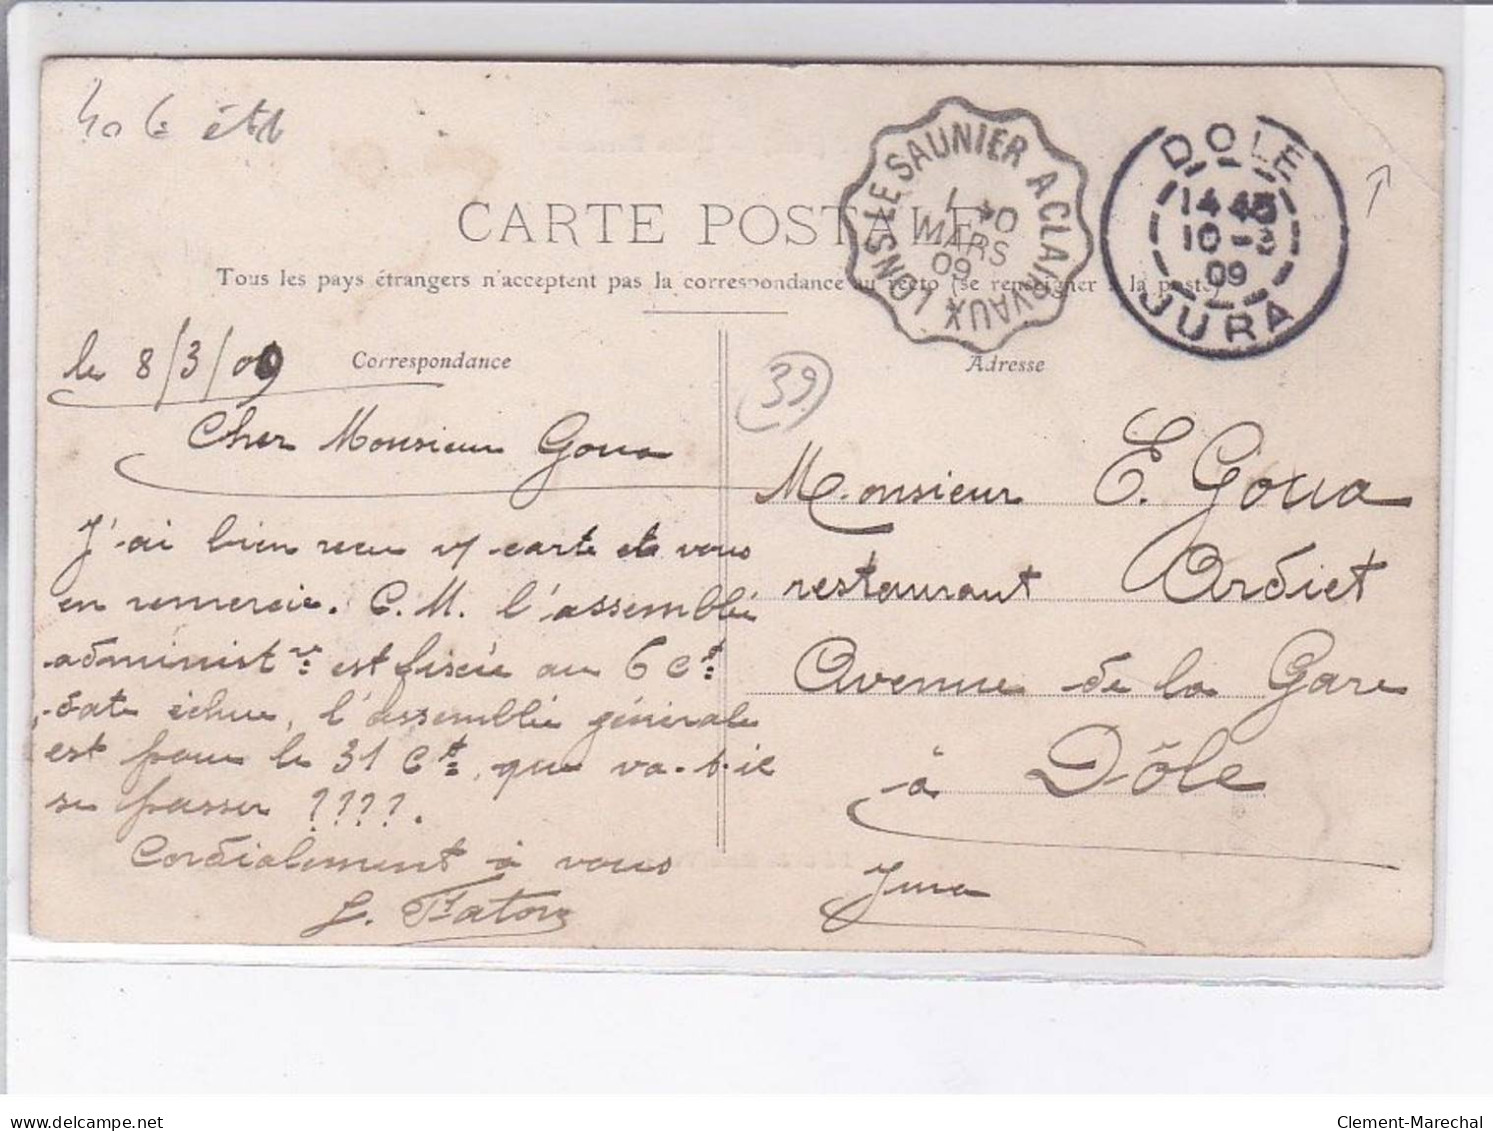 CARTE POSTALE
Tous les pays étrangers n'acceptent pas la correspondance au recto (se renseigner à la poste)
LONS LE SAUNIER A CLAIRVAUX
MARS
09
DOLE
14 45
10 -3
09
JURA
Correspondance
Adresse
39
le 8/3/09
Cher Monsieur Goua
J'ai bien recu v/ carte et vous
en remercie. C.M. l'assemblée
administve est fixée au 6 ct
date échue, l'assemblée générale
est pour le 31 Ct, que va-t-il
se passer ????.
Cordialement à vous
Monsieur E. Goua
restaurant Ordiet
Avenue de la Gare
à Dôle
Jura
delcampe.net
Clement-Marechal